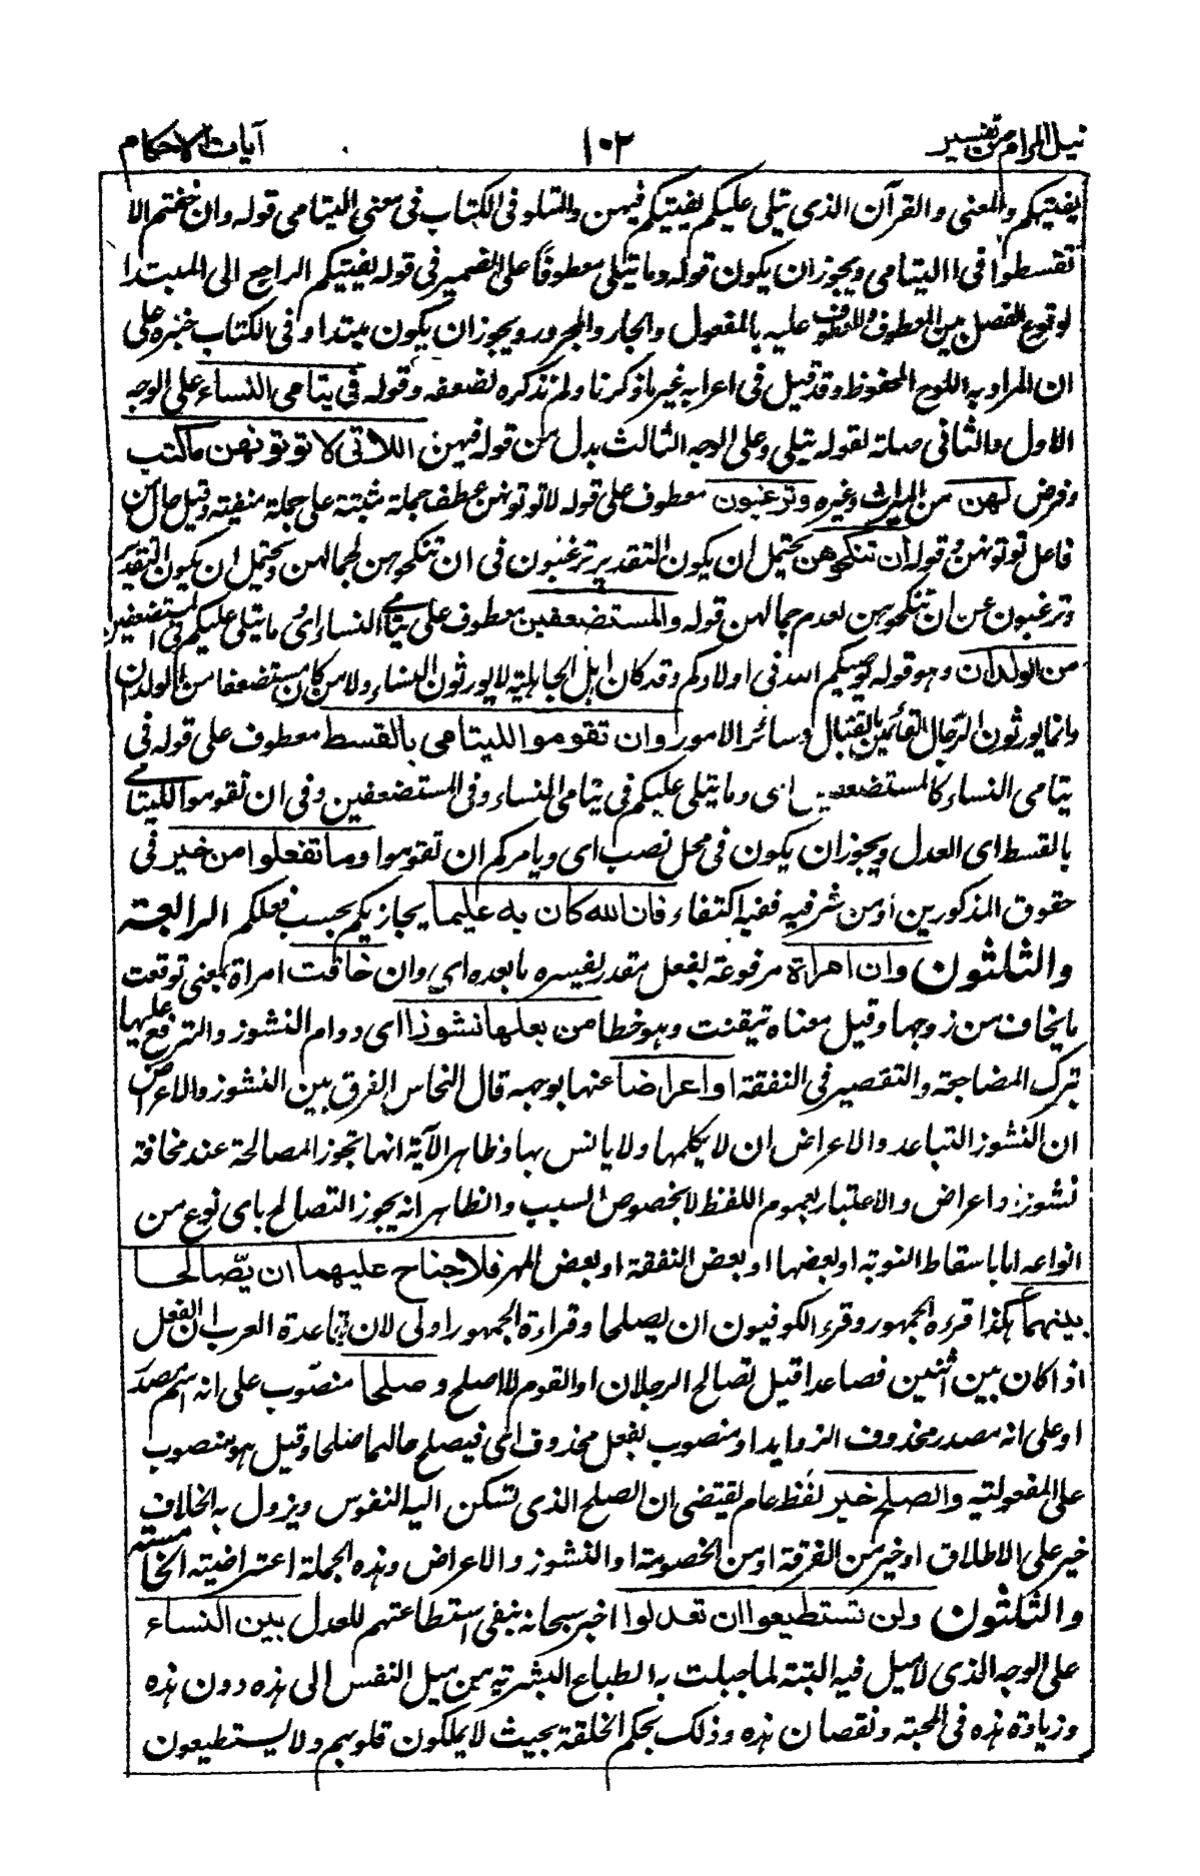 نيل المرام من تفسير ١٠٢ آيات الاحكام
يفتيكم والمعنى والقرآن الذى يتلى عليكم يفتيكم فيهن والمتلو فى الكتاب فى معنى اليتامى قوله وان خفتم الا
تقسطوا فى اليتامى ويجوز ان يكون قوله وما يتلى معطوفاً على الضمير فى قوله يفتيكم الراجع الى المبتدا
لوقوع الفصل بين المعطوف والمعطوف عليه بالمفعول والجار والمجرور ويجوز ان يكون مبتدا وفى الكتاب خبره على
ان المراد به اللوح المحفوظ وقد قيل فى اعرابه غير ما ذكرنا ولم نذكره لضعفه وقوله فى يتامى النساء على الوجه
الاول والثانى صلة لقوله يتلى وعلى الوجه الثالث بدل من قوله فيهن اللاتى لا توتونهن ما كتب
وفرض لهن من الميراث وغيره وترغبون معطوف على قوله لا توتونهن عطف جملة مثبتة على جملة منفية وقيل حال من
فاعل توتونهن وقوله ان تنكحوهن يحتمل ان يكون التقدير ترغبون فى ان تنكحوهن لجمالهن ويحتمل ان يكون التقدير
وترغبون عن ان تنكحوهن لعدم جمالهن قوله والمستضعفين معطوف على يتامى النساء اى وما يتلى عليكم فى المستضعفين
من الولدان وهو قوله يوصيكم الله فى اولادكم وقد كان اهل الجاهلية لا يورثون النساء ولا من كان مستضعفا من الولدان
وانما يورثون الرجال القائمين بالقتال وسائر الامور وان تقوموا لليتامى بالقسط معطوف على قوله فى
يتامى النساء كالمستضعفين اى وما يتلى عليكم فى يتامى النساء وفى المستضعفين وفى ان تقوموا لليتامى
بالقسط اى العدل ويجوز ان يكون فى محل نصب اى ويامركم ان تقوموا وما تفعلوا من خير فى
حقوق المذكورين او من شر فيه ففيه اكتفاء فان الله كان به عليما يجازيكم بحسب فعلكم الرابعة
والثلثون وان امراة مرفوعة بفعل مقدر يفسره ما بعده اى وان خافت امراة بمعنى توقعت
ما يخاف من زوجها وقيل معناه تيقنت وهو خطا من بعلها نشوزا اى دوام النشوز والترفع عليها
بترك المضاجعة والتقصير فى النفقة او اعراضا عنها بوجهه قال النحاس الفرق بين النشوز والاعراض
ان النشوز التباعد والاعراض ان لا يكلمها ولا يانس بها وظاهر الآية انها تجوز المصالحة عند مخافة
نشوز او اعراض والاعتبار بعموم اللفظ لا بخصوص السبب والظاهر انه يجوز التصالح باى نوع من
انواعه اما باسقاط النوبة او بعضها او بعض النفقة او بعض المهر فلا جناح عليهما ان يصّالحا
بينهما هكذا قرءه الجمهور وقرء الكوفيون ان يصلحا وقراءة الجمهور اولى لان قاعدة العرب ان الفعل
اذا كان بين اثنين فصاعدا قيل تصالح الرجلان او القوم لا اصلح وصلحا منصوب على انه اسم مصدر
او على انه مصدر محذوف الزوايد او منصوب بفعل محذوف اى فيصلح حالهما صلحا وقيل هو منصوب
على المفعولية والصلح خير لفظ عام يقتضى ان الصلح الذى تسكن اليه النفوس ويزول به الخلاف
خير على الاطلاق او خير من الفرقة او من الخصومة او النشوز والاعراض وهذه الجملة اعتراضية الخامسة
والثلثون ولن تستطيعوا ان تعدلوا اخبر سبحانه بنفى استطاعتهم للعدل بين النساء
على الوجه الذى لا ميل فيه البتة لما جبلت به الطباع البشرية من ميل النفس الى هذه دون هذه
وزيادة هذه فى المحبة ونقصان هذه وذلك بحكم الخلقة بحيث لا يملكون قلوبهم ولا يستطيعون